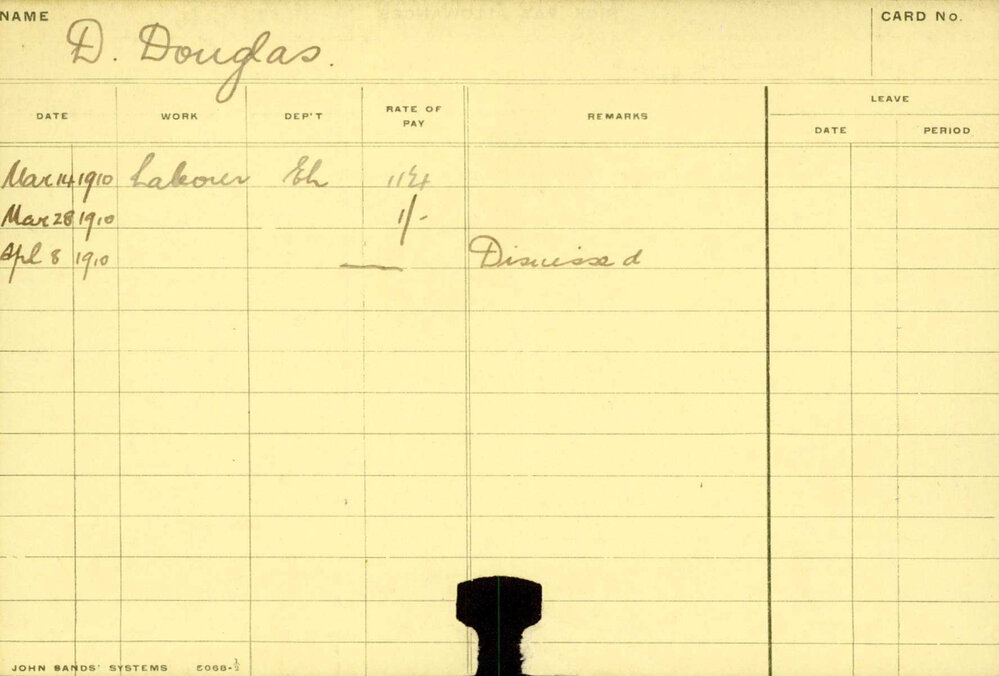 NAME D. Douglas. CARD No.
LEAVE
DATE WORK DEP'T RATE OF PAY REMARKS DATE PERIOD
Mar 14 1910 Labourer
Mar 28 1910 1/-
Apl 8 1910 — Dismissed
JOHN SANDS' SYSTEMS 5068-½